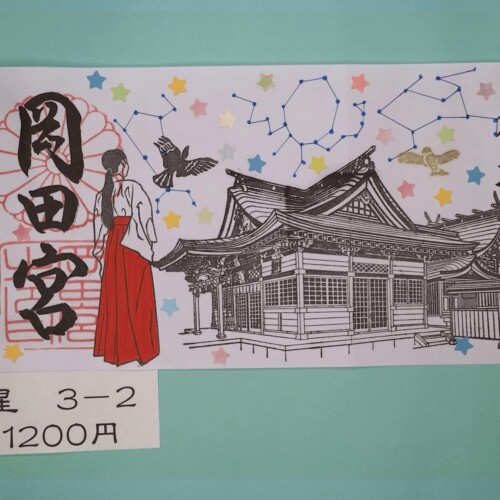 岡田宮
星 3-2
1200円